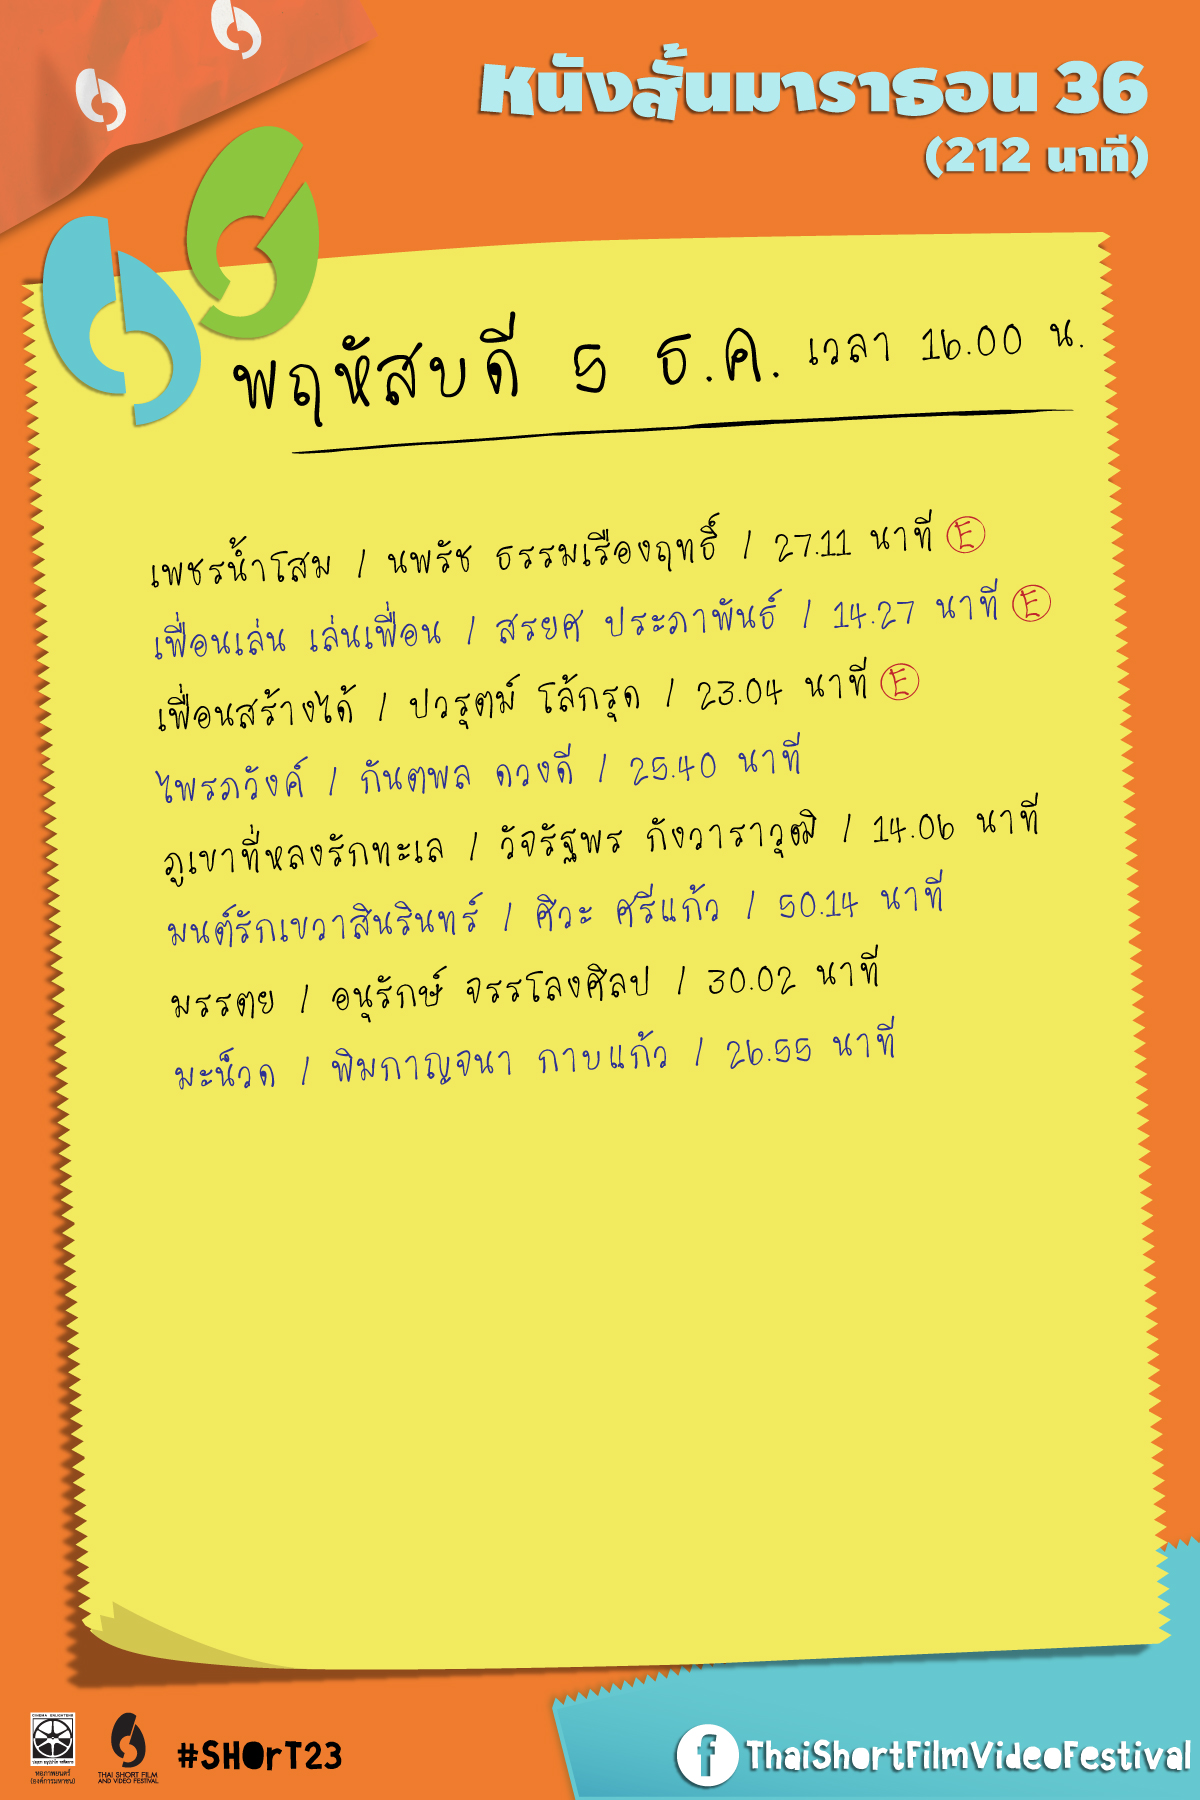 หนังสั้นมาราธอน 36
(212 นาที)
พฤหัสบดี 5 ธ.ค. เวลา 16.00 น.
เพชรน้ำโสม / นพรัช ธรรมเรืองฤทธิ์ / 27.11 นาที E
เพื่อนเล่น เล่นเพื่อน / สรยศ ประภาพันธ์ / 14.27 นาที E
เพื่อนสร้างได้ / ปวรุตม์ โล้กรุด / 23.04 นาที E
ไพรภวังค์ / กันตพล ดวงดี / 25.40 นาที
ภูเขาที่หลงรักทะเล / วัจรัฐพร กังวาราวุฒิ / 14.06 นาที
มนต์รักเขวาสินรินทร์ / ศิวะ ศรีแก้ว / 50.14 นาที
มรรตย / อนุรักษ์ จรรโลงศิลป / 30.02 นาที
มะน็วด / พิมกาญจนา กาบแก้ว / 26.55 นาที
CINEMA ENLIGHTENS
หอภาพยนตร์
(องค์การมหาชน)
THAI SHORT FILM
AND VIDEO FESTIVAL
#SHOrT23
f ThaiShortFilmVideoFestival